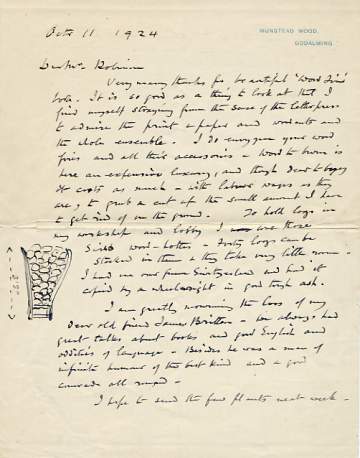 MUNSTEAD WOOD,
GODALMING.
Octr 11 1924
Dear Mr Robinson
Very many thanks for beautiful 'Wood Fires'
book. It is so good as a thing to look at that I
find myself straying from the sense of the letterpress
to admire the print & paper and woodcuts and
the whole ensemble. I do envy you your wood
fires and all their accessories - Wood to burn is
here an expensive luxury, and though dear to buy
it costs as much - with labour wages as they
are, to grub & cut up the small amount I have
to get rid of on the ground. To hold logs in
my workshop and lobby I use those
Swiss wood-hottes - forty logs can be
stacked in them & they take very little room -
I had one from Switzerland and had it
copied by a wheelwright in good tough ash.
I am greatly mourning the loss of my
dear old friend James Britten - we always had
great talks about books and good English and
oddities of language - Besides he was a man of
infinite humour of the best kind and a good
comrade all round -
I hope to send the few plants next week -